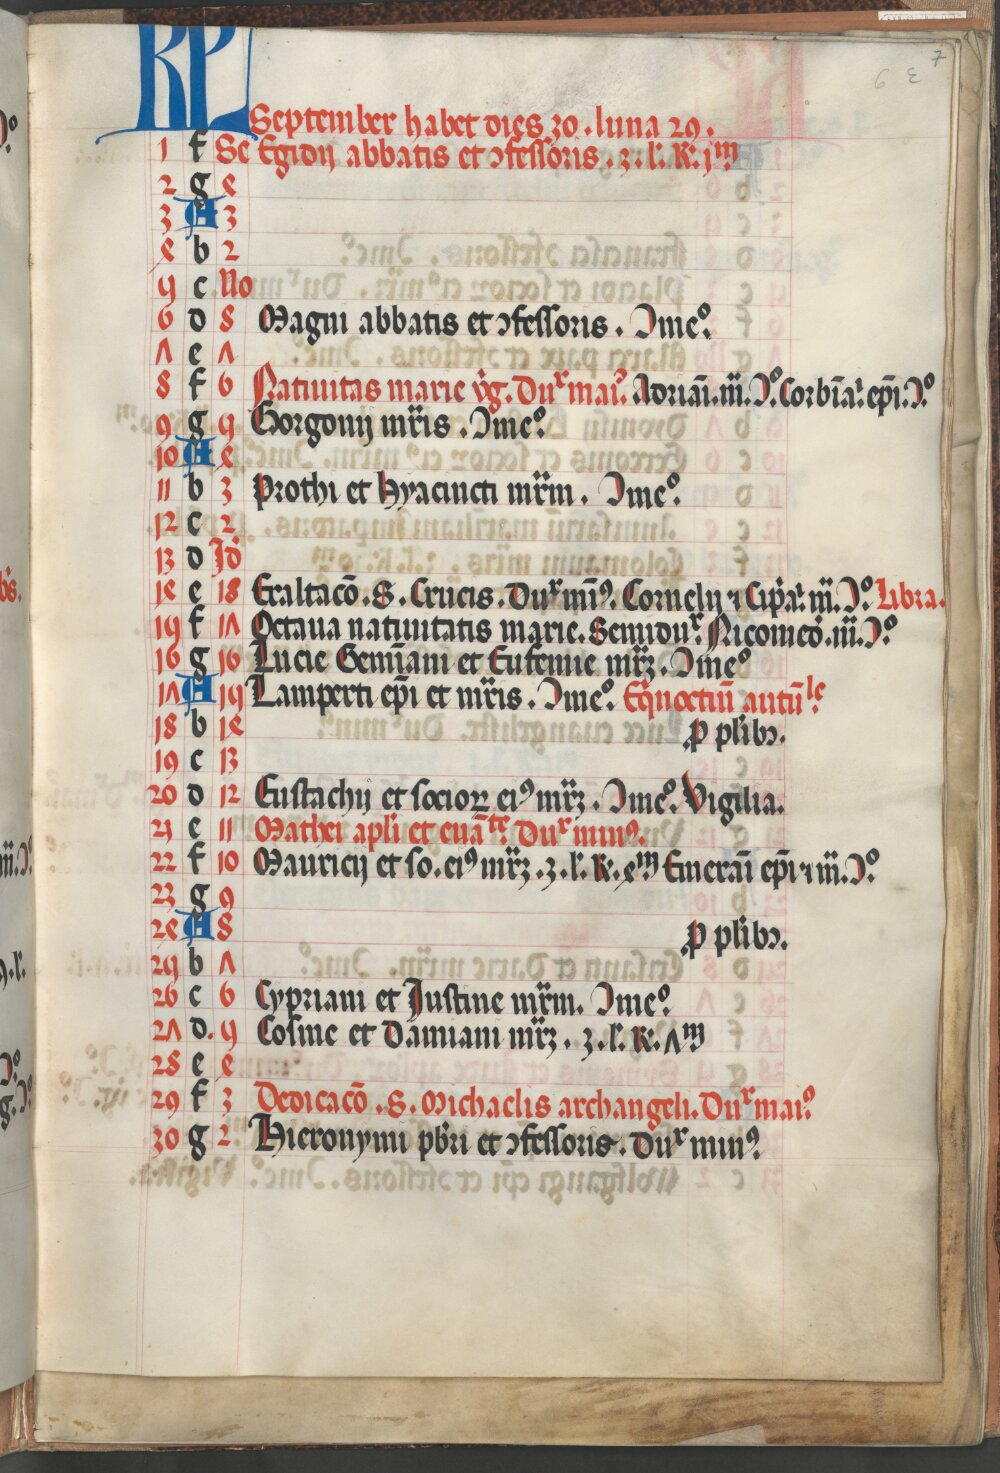 7
6 3
KL September habet dies 30. luna 29.
1 f Se Egidij abbatis et ɔfessoris. 3. l'. R'. jm
2 g 4
3 A 3
4 b 2
5 c No
6 d 8 Magni abbatis et ɔfessoris. Ɔmeo.
7 e 7
8 f 6 Natiuitas marie v̇g. Dux mai9. Adriāi. m̄. Ɔo. Corbīa'. ep̄i. Ɔo
9 g 5 Gorgonij mr̄is. Ɔmeo.
10 A 4
11 b 3 Prothi et Hyacincti mr̄m. Ɔmeo.
12 c 2
13 d Jd
14 e 18 Exaltacō. S. Crucis. Dux min9. Cornelij ⁊ Cip̄a'. m̄. Ɔo Libra.
15 f 17 Octaua natiuitatis marie. Semidux. Nicomed'. m̄. Ɔo.
16 g 16 Lucie Gemīani et Eufemie mr̄ʒ. Ɔmeo
17 A 15 Lamperti ep̄i et mr̄is. Ɔmeo. Eq̄noctiū autūle.
18 b 14 ꝑ plibɜ.
19 c 13
20 d 12 Eustachij et socioꝝ ei9 mr̄ʒ. Ɔmeo. Vigilia.
21 e 11 Mathei apl'i et euāte. Dux min9.
22 f 10 Mauricij et so. ei9 mr̄ʒ. 3. l'. R'. xm Emerāi ep̄i ⁊ m̄. Ɔo
23 g 9
24 A 8 ꝑ plibɜ.
25 b 7
26 c 6 Cypriani et Justine mr̄m. Ɔmeo
27 d. 5 Cosme et Damiani mr̄ʒ. 3. l'. R'. 7m
28 e 4
29 f 3 Dedicacō. S. Michaelis archangeli. Dux mai9.
30 g 2 Hieronymi pb̄ri et ɔfessoris. Dux min9.